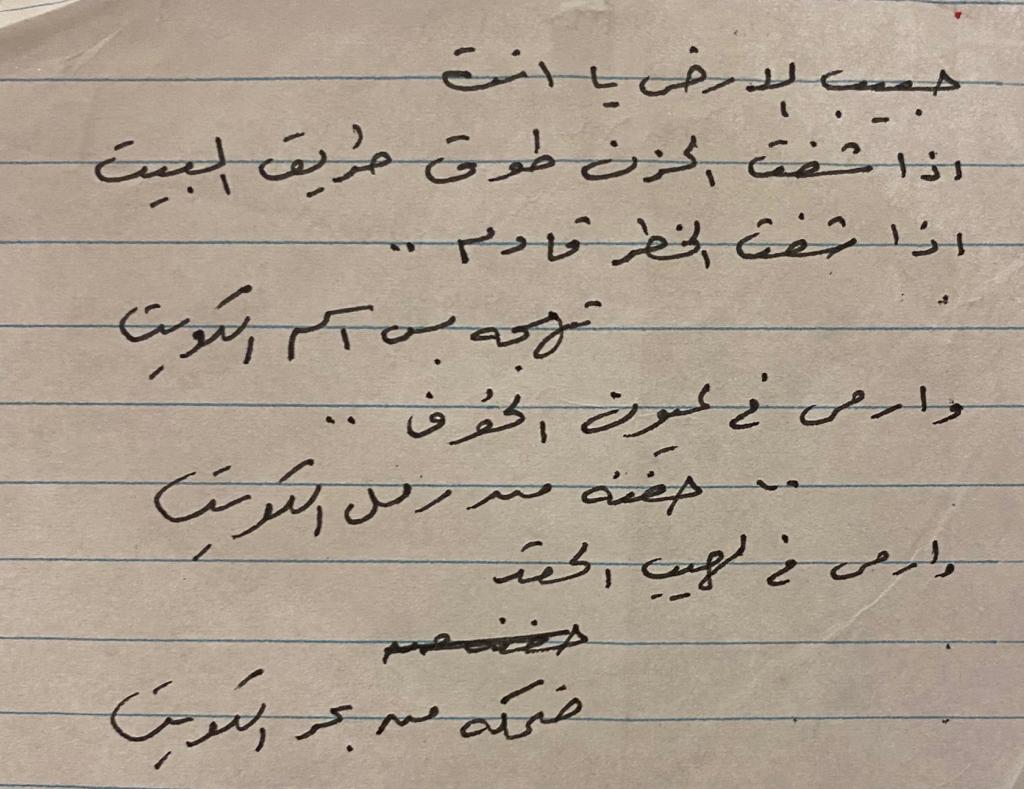 حبيب الارض يا انت
اذا شفت الحزن طوق طريق البيت
اذا شفت الخطر قادم ..
تهجه بس اسم الكويت
وارمى في عيون الخوف ..
.. حفنه من رمل الكويت
وارمى في لهيب الحقد
ضحكه من بحر الكويت